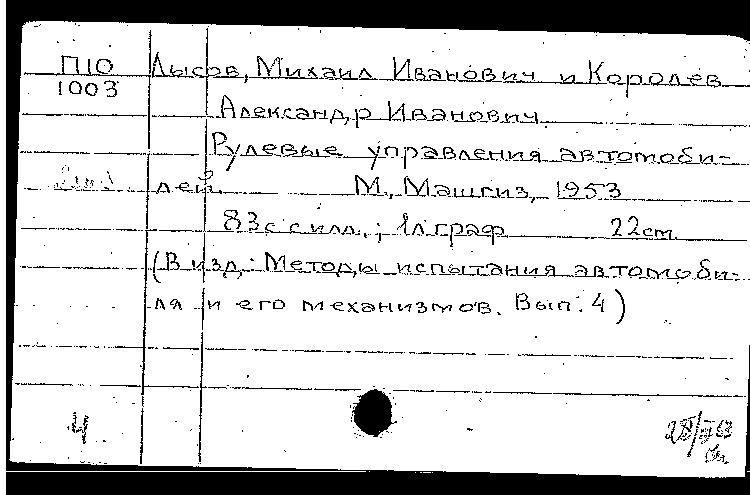 П10 Лысов, Михаил Иванович и Королев
1003
Александр Иванович.
Рулевые управления автомоби-
лей. М., Машгиз, 1953
83с с илл.; 1л.граф 22cm.
(В изд.: Методы испытания автомоби-
ля и его механизмов. Вып. 4)
4